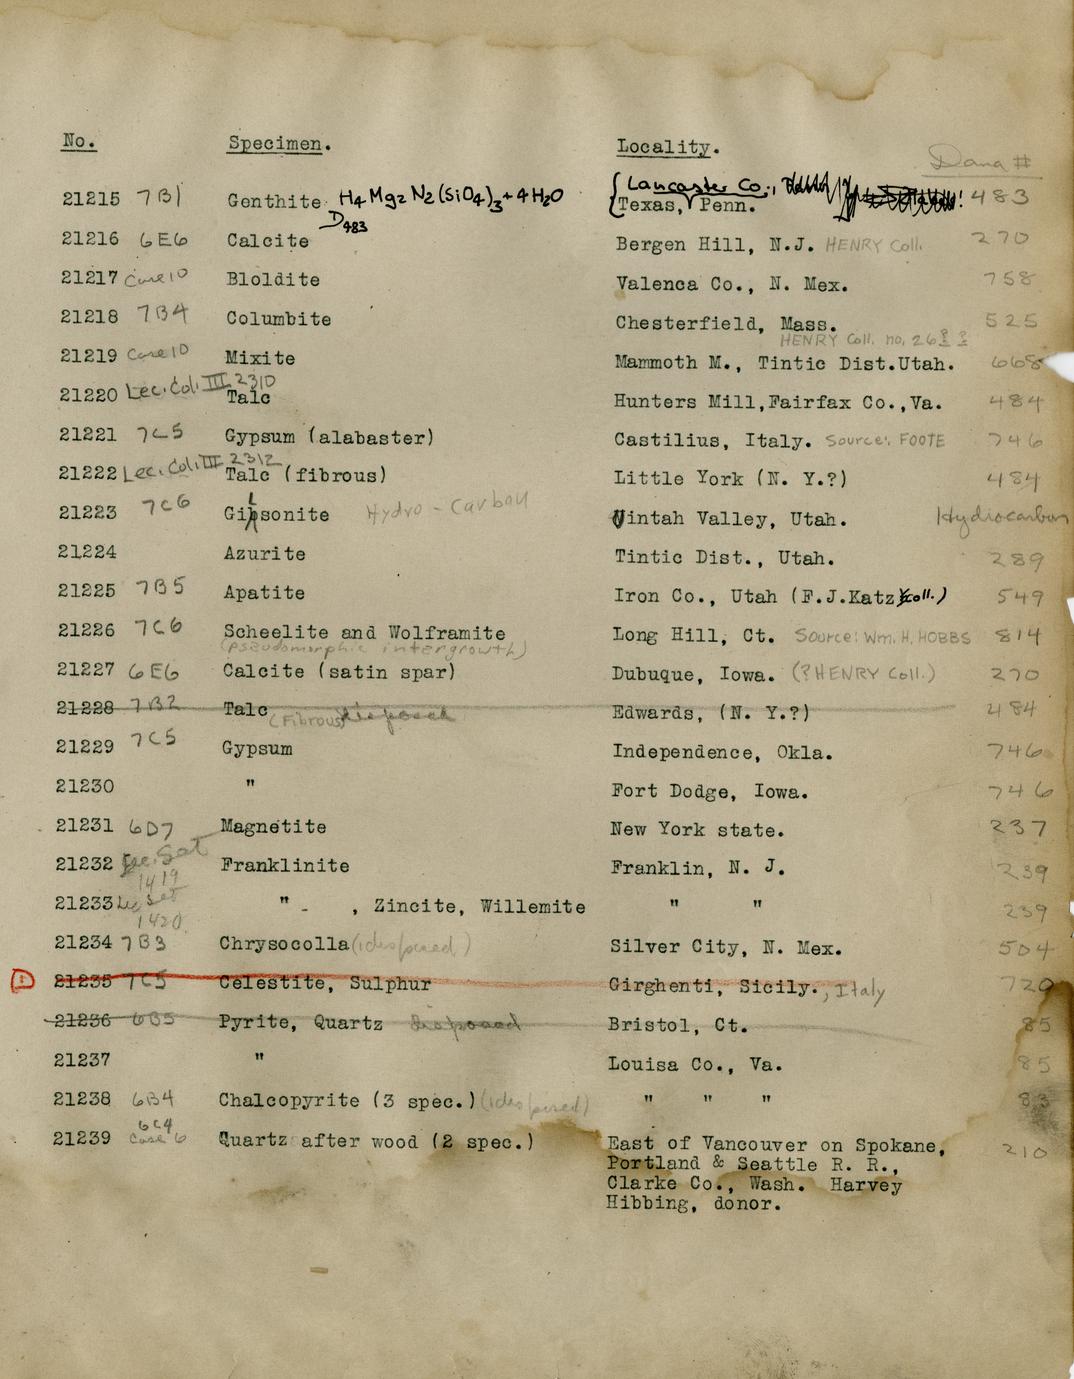 No. Specimen. Locality. Dana #
21215 7B1 Genthite H4 Mg2 N2 (SiO4)3 + 4H2O { Lancaster Co., 483
D483 Texas, Penn.
21216 6E6 Calcite Bergen Hill, N.J. HENRY Coll. 270
21217 Case 10 Bloldite Valenca Co., N. Mex. 758
21218 7B4 Columbite Chesterfield, Mass. 525
HENRY Coll. no. 26
21219 Case 10 Mixite Mammoth M., Tintic Dist.Utah. 668
21220 Lec. Col. III 2310 Talc Hunters Mill,Fairfax Co.,Va. 484
21221 7C5 Gypsum (alabaster) Castilius, Italy. Source: FOOTE 746
21222 Lec. Col. III 2312 Talc (fibrous) Little York (N. Y.?) 484
21223 7C6 Gilsonite Hydro-Carbon Uintah Valley, Utah. Hydrocarbon
21224 Azurite Tintic Dist., Utah. 289
21225 7B5 Apatite Iron Co., Utah (F.J.Katz coll.) 549
21226 7C6 Scheelite and Wolframite Long Hill, Ct. Source: Wm. H. HOBBS 814
(pseudomorphic intergrowth)
21227 6E6 Calcite (satin spar) Dubuque, Iowa. (?HENRY Coll.) 270
21228 7B2 Talc Edwards, (N. Y.?) 484
(Fibrous) disposed
21229 7C5 Gypsum Independence, Okla. 746
21230 " Fort Dodge, Iowa. 746
21231 6D7 Magnetite New York state. 237
21232 Lec. Set 1419 Franklinite Franklin, N. J. 239
21233 Lec Set 1420 " - , Zincite, Willemite " " 239
21234 7B3 Chrysocolla (1 disposed) Silver City, N. Mex. 504
21235 7C5 Celestite, Sulphur Girghenti, Sicily., Italy 720
21236 6B5 Pyrite, Quartz disposed Bristol, Ct. 85
21237 " Louisa Co., Va. 85
21238 6B4 Chalcopyrite (3 spec.) (1 disposed) " " " 83
21239 6C4 Case 6 Quartz after wood (2 spec.) East of Vancouver on Spokane, 210
Portland & Seattle R. R.,
Clarke Co., Wash. Harvey
Hibbing, donor.